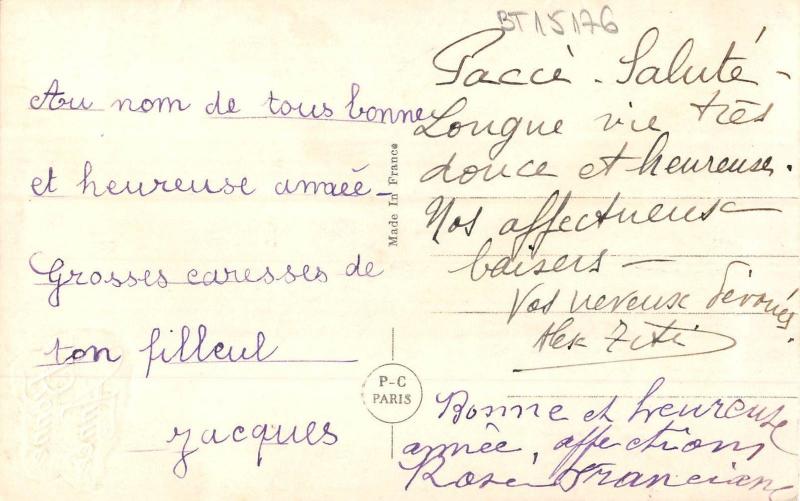 BT15176
Au nom de tous bonne
et heureuse année -
Grosses caresses de
ton filleul
Jacques
Made In France
P-C
PARIS
Pacce - Saluté -
Longue vie très
douce et heureuse.
Nos affectueux
baisers -
Vos neveux dévoués.
Alex Titi
Bonne et heureuse
année, affections
Rose Franciane